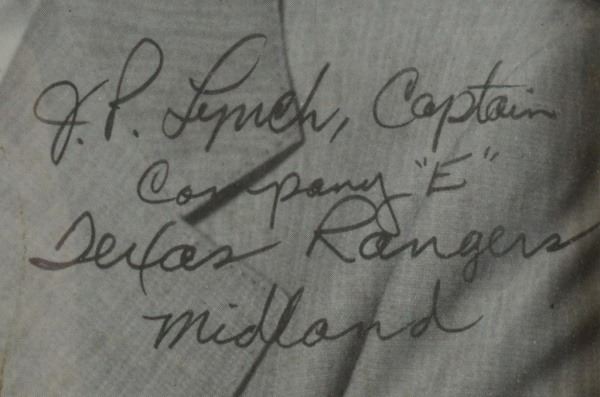 J. P. Lynch, Captain
Company "E"
Texas Rangers
Midland